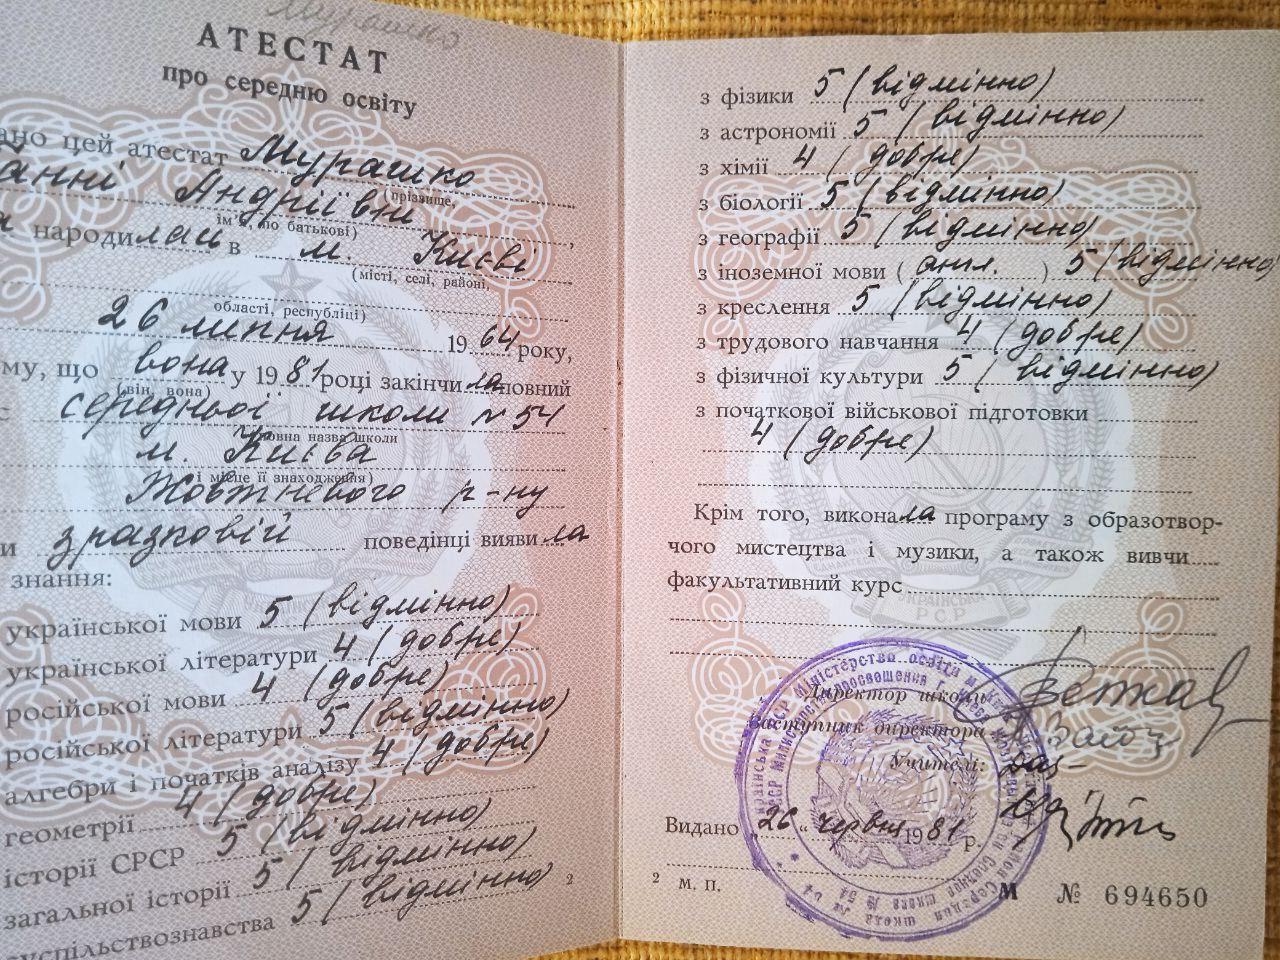 Мурашко
АТЕСТАТ
про середню освіту
ано цей атестат Мурашко
(прізвище,
анні Андріївні
ім'я, по батькові)
а народилась в м. Києві
(місті, селі, районі,
області, республіці)
26 липня 1964 року,
му, що вона у 1981 році закінчила повний
(він, вона)
с середньої школи № 54
(повна назва школи
м. Києва
і місце її знаходження)
Жовтневого р-ну
и зразковій поведінці виявила
знання:
української мови 5 (відмінно)
української літератури 4 (добре)
російської мови 4 (добре)
російської літератури 5 (відмінно)
алгебри і початків аналізу 4 (добре)
геометрії 4 (добре)
історії СРСР 5 (відмінно)
загальної історії 5 (відмінно)
суспільствознавства 5 (відмінно) 2
з фізики 5 (відмінно)
з астрономії 5 (відмінно)
з хімії 4 (добре)
з біології 5 (відмінно)
з географії 5 (відмінно)
з іноземної мови (англ.) 5 (відмінно)
з креслення 5 (відмінно)
з трудового навчання 4 (добре)
з фізичної культури 5 (відмінно)
з початкової військової підготовки
4 (добре)
Крім того, виконала програму з образотвор-
чого мистецтва і музики, а також вивчи
факультативний курс
УКРАЇНСЬКА
РСР
Директор школи
Заступник директора
Учителі:
Видано „26“ червня 1981 р.
2 м. п.
М № 694650